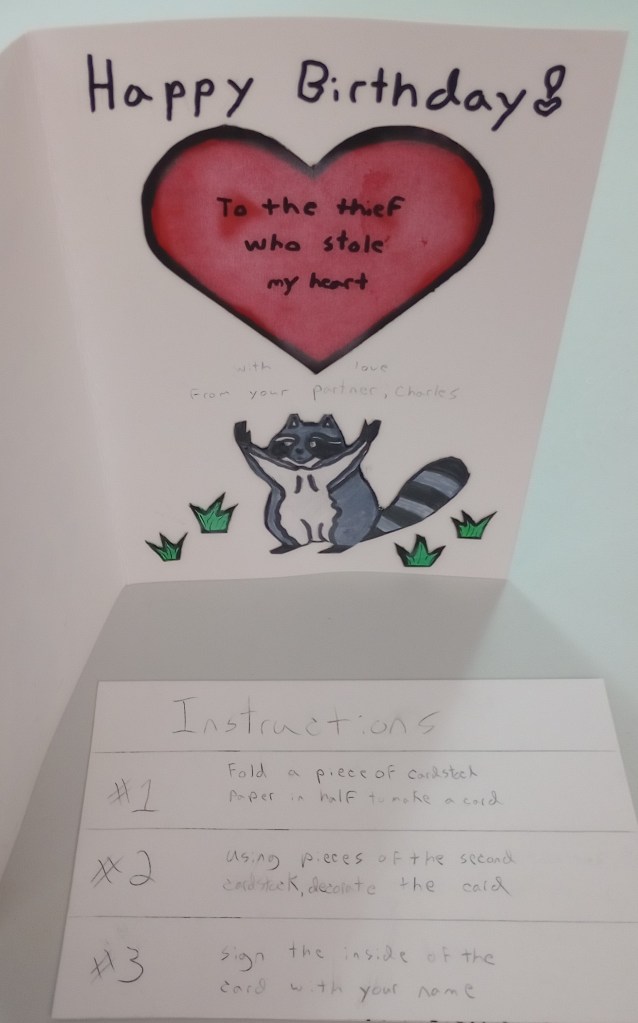 Happy Birthday!
To the thief
who stole
my heart
with love
From your partner, Charles
Instructions
#1
Fold a piece of cardstock
paper in half to make a card
#2
Using pieces of the second
cardstock, decorate the card
#3
Sign the inside of the
card with your name